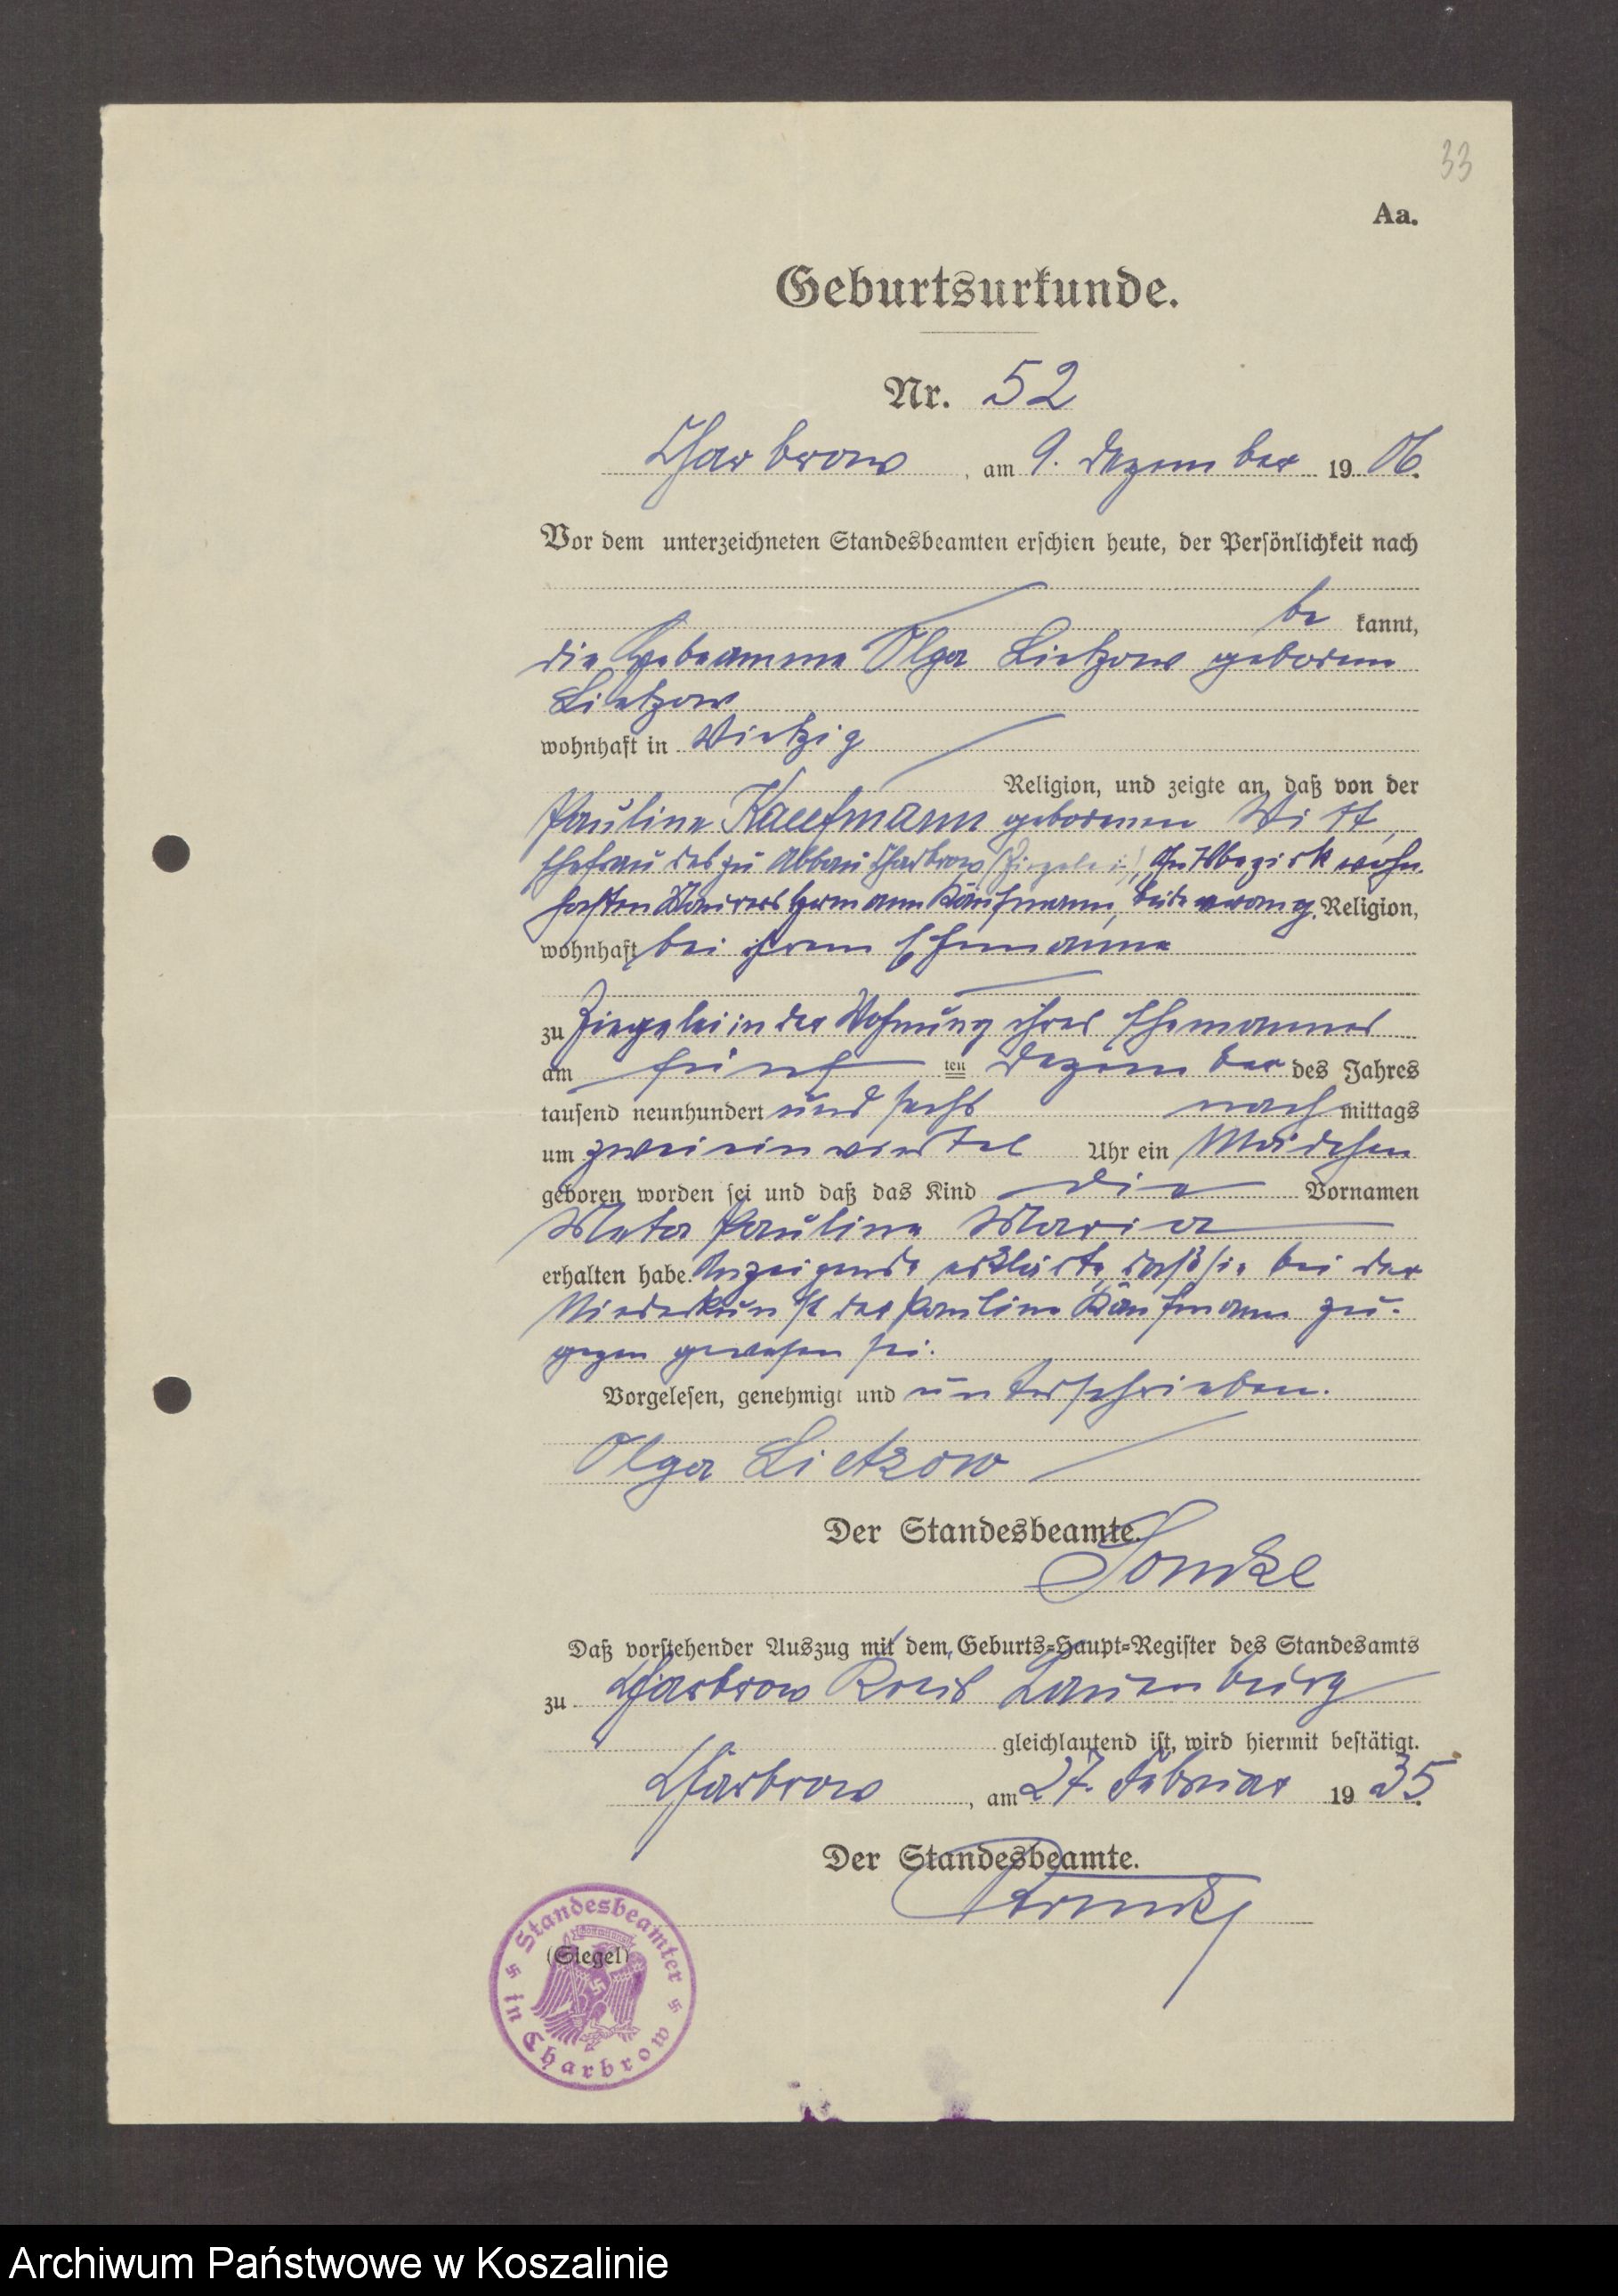 33
Aa.
Geburtsurkunde.
Nr. 52
Charbrow, am 9. Dezember 1906.
Vor dem unterzeichneten Standesbeamten erschien heute, der Persönlichkeit nach
be kannt,
die Hebeamme Olga Lietzow geborene
Lietzow
wohnhaft in Vietzig
Religion, und zeigte an, daß von der
Pauline Kaufmann geborenen Witt,
Ehefrau des zu Abbau Charbrow (Ziegelei), Gutsbezirk wohn-
haften Maurers Hermann Kaufmann, beide evang. Religion,
wohnhaft bei ihrem Ehemanne
zu Ziegelei in der Wohnung ihres Ehemannes
am fünf ten Dezember des Jahres
tausend neunhundert und sechs nach mittags
um zweieinviertel Uhr ein Mädchen
geboren worden sei und daß das Kind die Vornamen
Meta Pauline Maria
erhalten habe. Anzeigende erklärte, daß sie bei der
Niederkunft der Pauline Kaufmann zu-
gegen gewesen sei.
Vorgelesen, genehmigt und unterschrieben.
Olga Lietzow
Der Standesbeamte.
Daß vorstehender Auszug mit dem Geburts-Haupt-Register des Standesamts
zu Charbrow Kreis Lauenburg
gleichlautend ist, wird hiermit bestätigt.
Charbrow, am 27. Februar 1935.
Der Standesbeamte.
(Siegel)
Standesbeamter in Charbrow
Archiwum Państwowe w Koszalinie